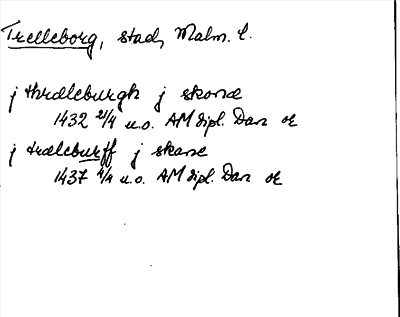 Trelleborg, stad, Malm. l.
j thræleburgh j skonæ
1432 21/4 u.o. AM dipl. Dan or
j træleburff j skane
1437 4/4 u.o. AM dipl. Dan or